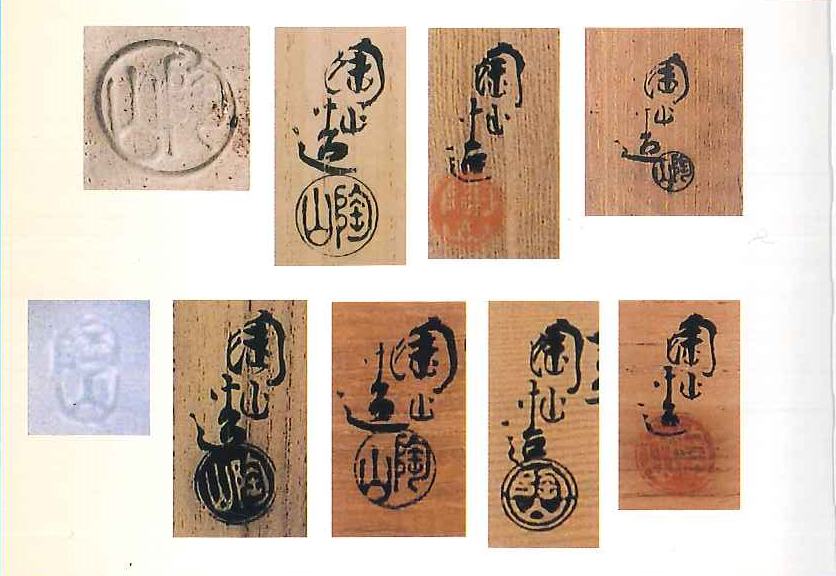 陶山
陶山造
陶山
陶山造
陶山造
陶山
陶山
陶山造
陶山
陶山造
陶山
陶山造
陶山
陶山造